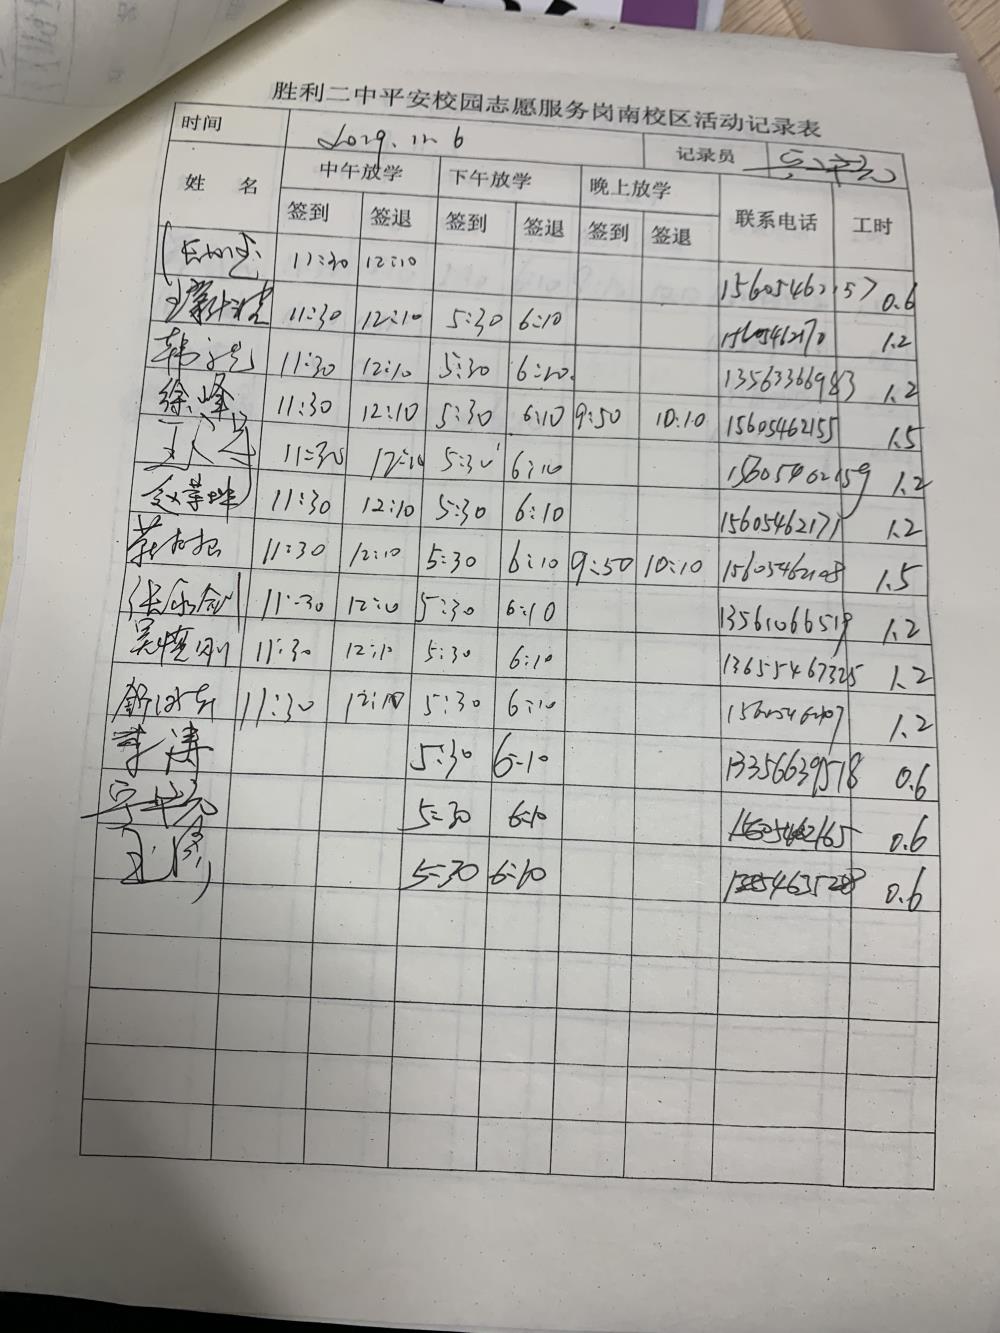 胜利二中平安校园志愿服务岗南校区活动记录表
时间 记录员
姓 名 中午放学 下午放学 晚上放学 联系电话 工时
签到 签退 签到 签退 签到 签退
11:30 12:10 15605462157 0.6
11:30 12:10 5:30 6:10 15605462170 1.2
11:30 12:10 5:30 6:10 13563366983 1.2
徐峰 11:30 12:10 5:30 6:10 9:50 10:10 15605462155 1.5
11:30 12:10 5:30 6:10 15605462159 1.2
11:30 12:10 5:30 6:10 15605462171 1.2
11:30 12:10 5:30 6:10 9:50 10:10 15605462108 1.5
11:30 12:10 5:30 6:10 13561066519 1.2
11:30 12:10 5:30 6:10 13655467325 1.2
11:30 12:10 5:30 6:10 1.2
李涛 5:30 6:10 13356639518 0.6
5:30 6:10 15605462165 0.6
5:30 6:10 0.6